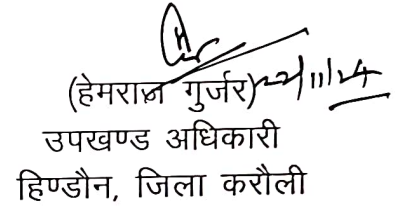 (हेमराज गुर्जर) 22/11/24
उपखण्ड अधिकारी
हिण्डौन, जिला करौली